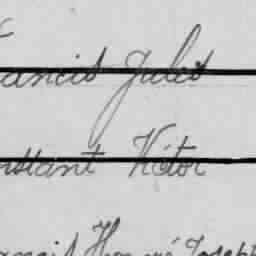 ancis Jules
nstant Victor
ancis Honoré Joseph